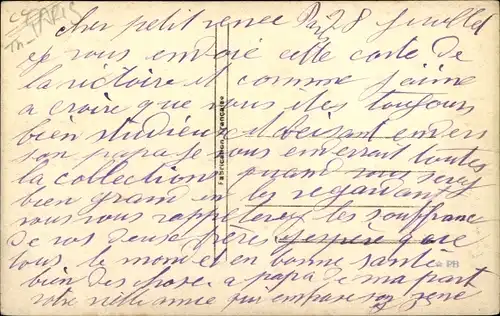 Cher petit renee Paris 28 Juillet
Je vous envoie cette carte de
la victoire et comme j'aime
a croire que vous etes toujours
bien studieux obeisant envers
son papa je vous enverrait toutes
la collection quand vous serez
bien grand en les regardant
vous vous rappelerez les souffrance
de vos deuse freres j'espère que
tous le monde et en bonne sante
bien des chose a papa de ma part
votre vielle amie qui embrase
Fabrication Française
PARIS
PB